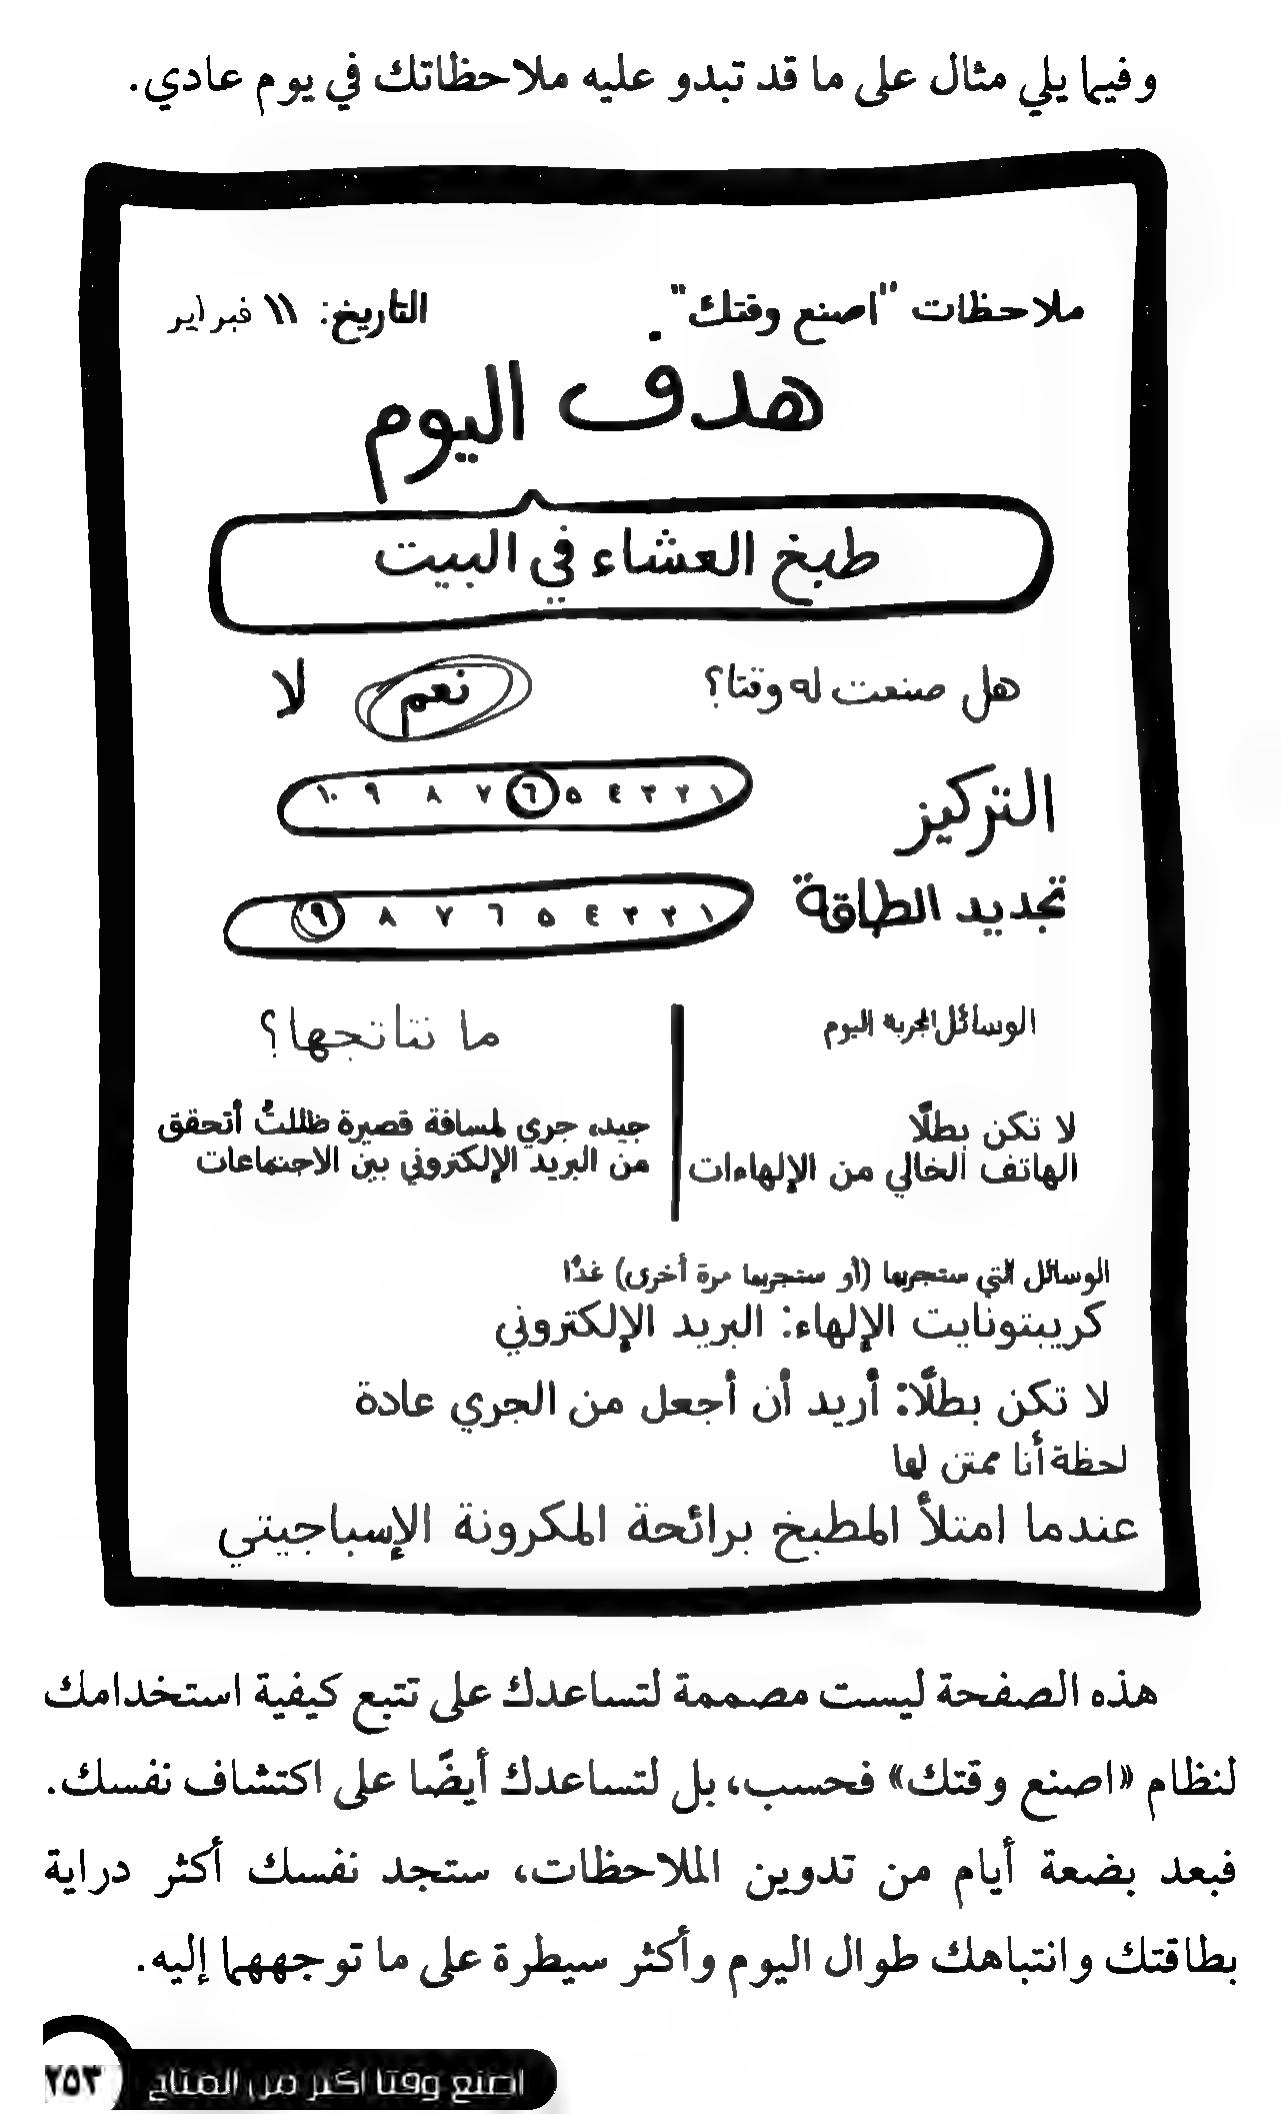 وفيما يلي مثال على ما قد تبدو عليه ملاحظاتك في يوم عادي.
ملاحظات "اصنع وقتك" التاريخ: ١١ فبراير
هدف اليوم
طبخ العشاء في البيت
هل صنعت له وقتا؟ نعم لا
التركيز ١ ٢ ٣ ٤ ٥ ٦ ٧ ٨ ٩ ١٠
تجديد الطاقة ١ ٢ ٣ ٤ ٥ ٦ ٧ ٨ ٩
الوسائل المجربة اليوم
ما نتائجها؟
لا تكن بطلًا
الهاتف الخالي من الإلهاءات
جيد، جري لمسافة قصيرة ظللتُ أتحقق
من البريد الإلكتروني بين الاجتماعات
الوسائل التي ستجربها (أو ستجربها مرة أخرى) غدًا
كريبتونايت الإلهاء: البريد الإلكتروني
لا تكن بطلًا: أريد أن أجعل من الجري عادة
لحظة أنا ممتن لها
عندما امتلأ المطبخ برائحة المكرونة الإسباجيتي
هذه الصفحة ليست مصممة لتساعدك على تتبع كيفية استخدامك
لنظام «اصنع وقتك» فحسب، بل لتساعدك أيضًا على اكتشاف نفسك.
فبعد بضعة أيام من تدوين الملاحظات، ستجد نفسك أكثر دراية
بطاقتك وانتباهك طوال اليوم وأكثر سيطرة على ما توجههما إليه.
اصنع وقتا أكثر من المتاح ٢٥٣